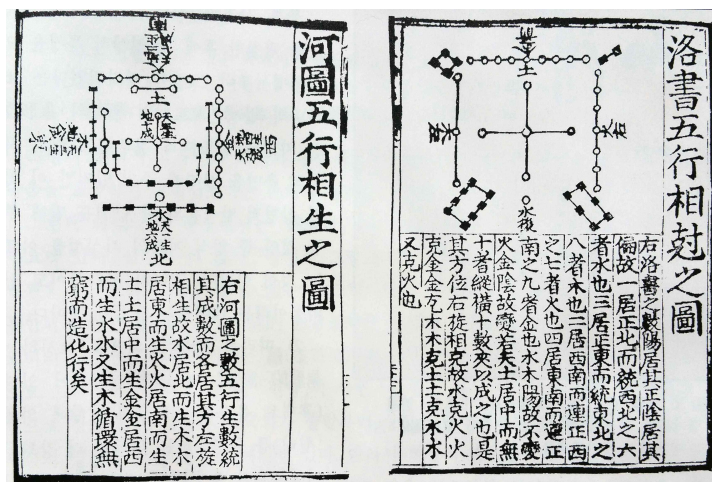 洛書五行相尅之圖
土
火右
水後
右洛書之數陽居其正陰居其
偏故一居正北而統西北之六
者水也三居正東而統東北之
八者木也二居西南而連正西
之七者火也四居東南而連正
南之九者金也水木陽故不變
火金陰故變若夫土居中而無
十者縱橫十數夾以成之也是
其方位右旋相克故水克火火
克金金克木木克土土克水水
又克火也
河圖五行相生之圖
土
地十成
水天一生
北
右河圖之數五行生數統
其成數而各居其方左旋
相生故水居北而生木木
居東而生火火居南而生
土土居中而生金金居西
而生水水又生木循環無
窮而造化行矣